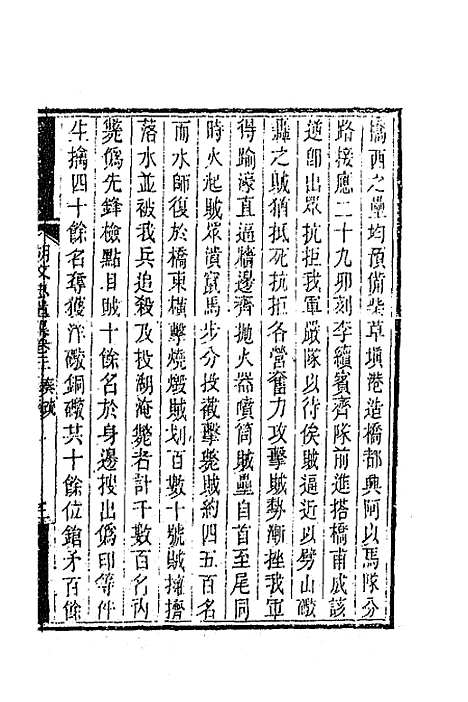 橋西之壘均預備柴草塡港造橋都興阿以馬隊分
路接應二十九卯刻李續賓齊隊前進搭橋甫成該
逆卽出眾抗拒我軍嚴隊以待俟賊逼近以劈山礮
轟之賊猶抵死抗拒各營奮力攻擊賊勢漸挫我軍
得踰濠直逼牆邊齊拋火器噴筒賊壘自首至尾同
時火起賊眾潰竄馬步分投截擊斃賊約四五百名
而水師復於橋東橫擊燒燬賊划百數十號賊擁擠
落水並被我兵追殺及投湖淹斃者計千數百名內
斃僞先鋒檢點目賊十餘名於身邊搜出僞印等件
生擒四十餘名奪獲洋礮銅礮共十餘位鎗矛百餘
胡文忠遺集卷二奏疏